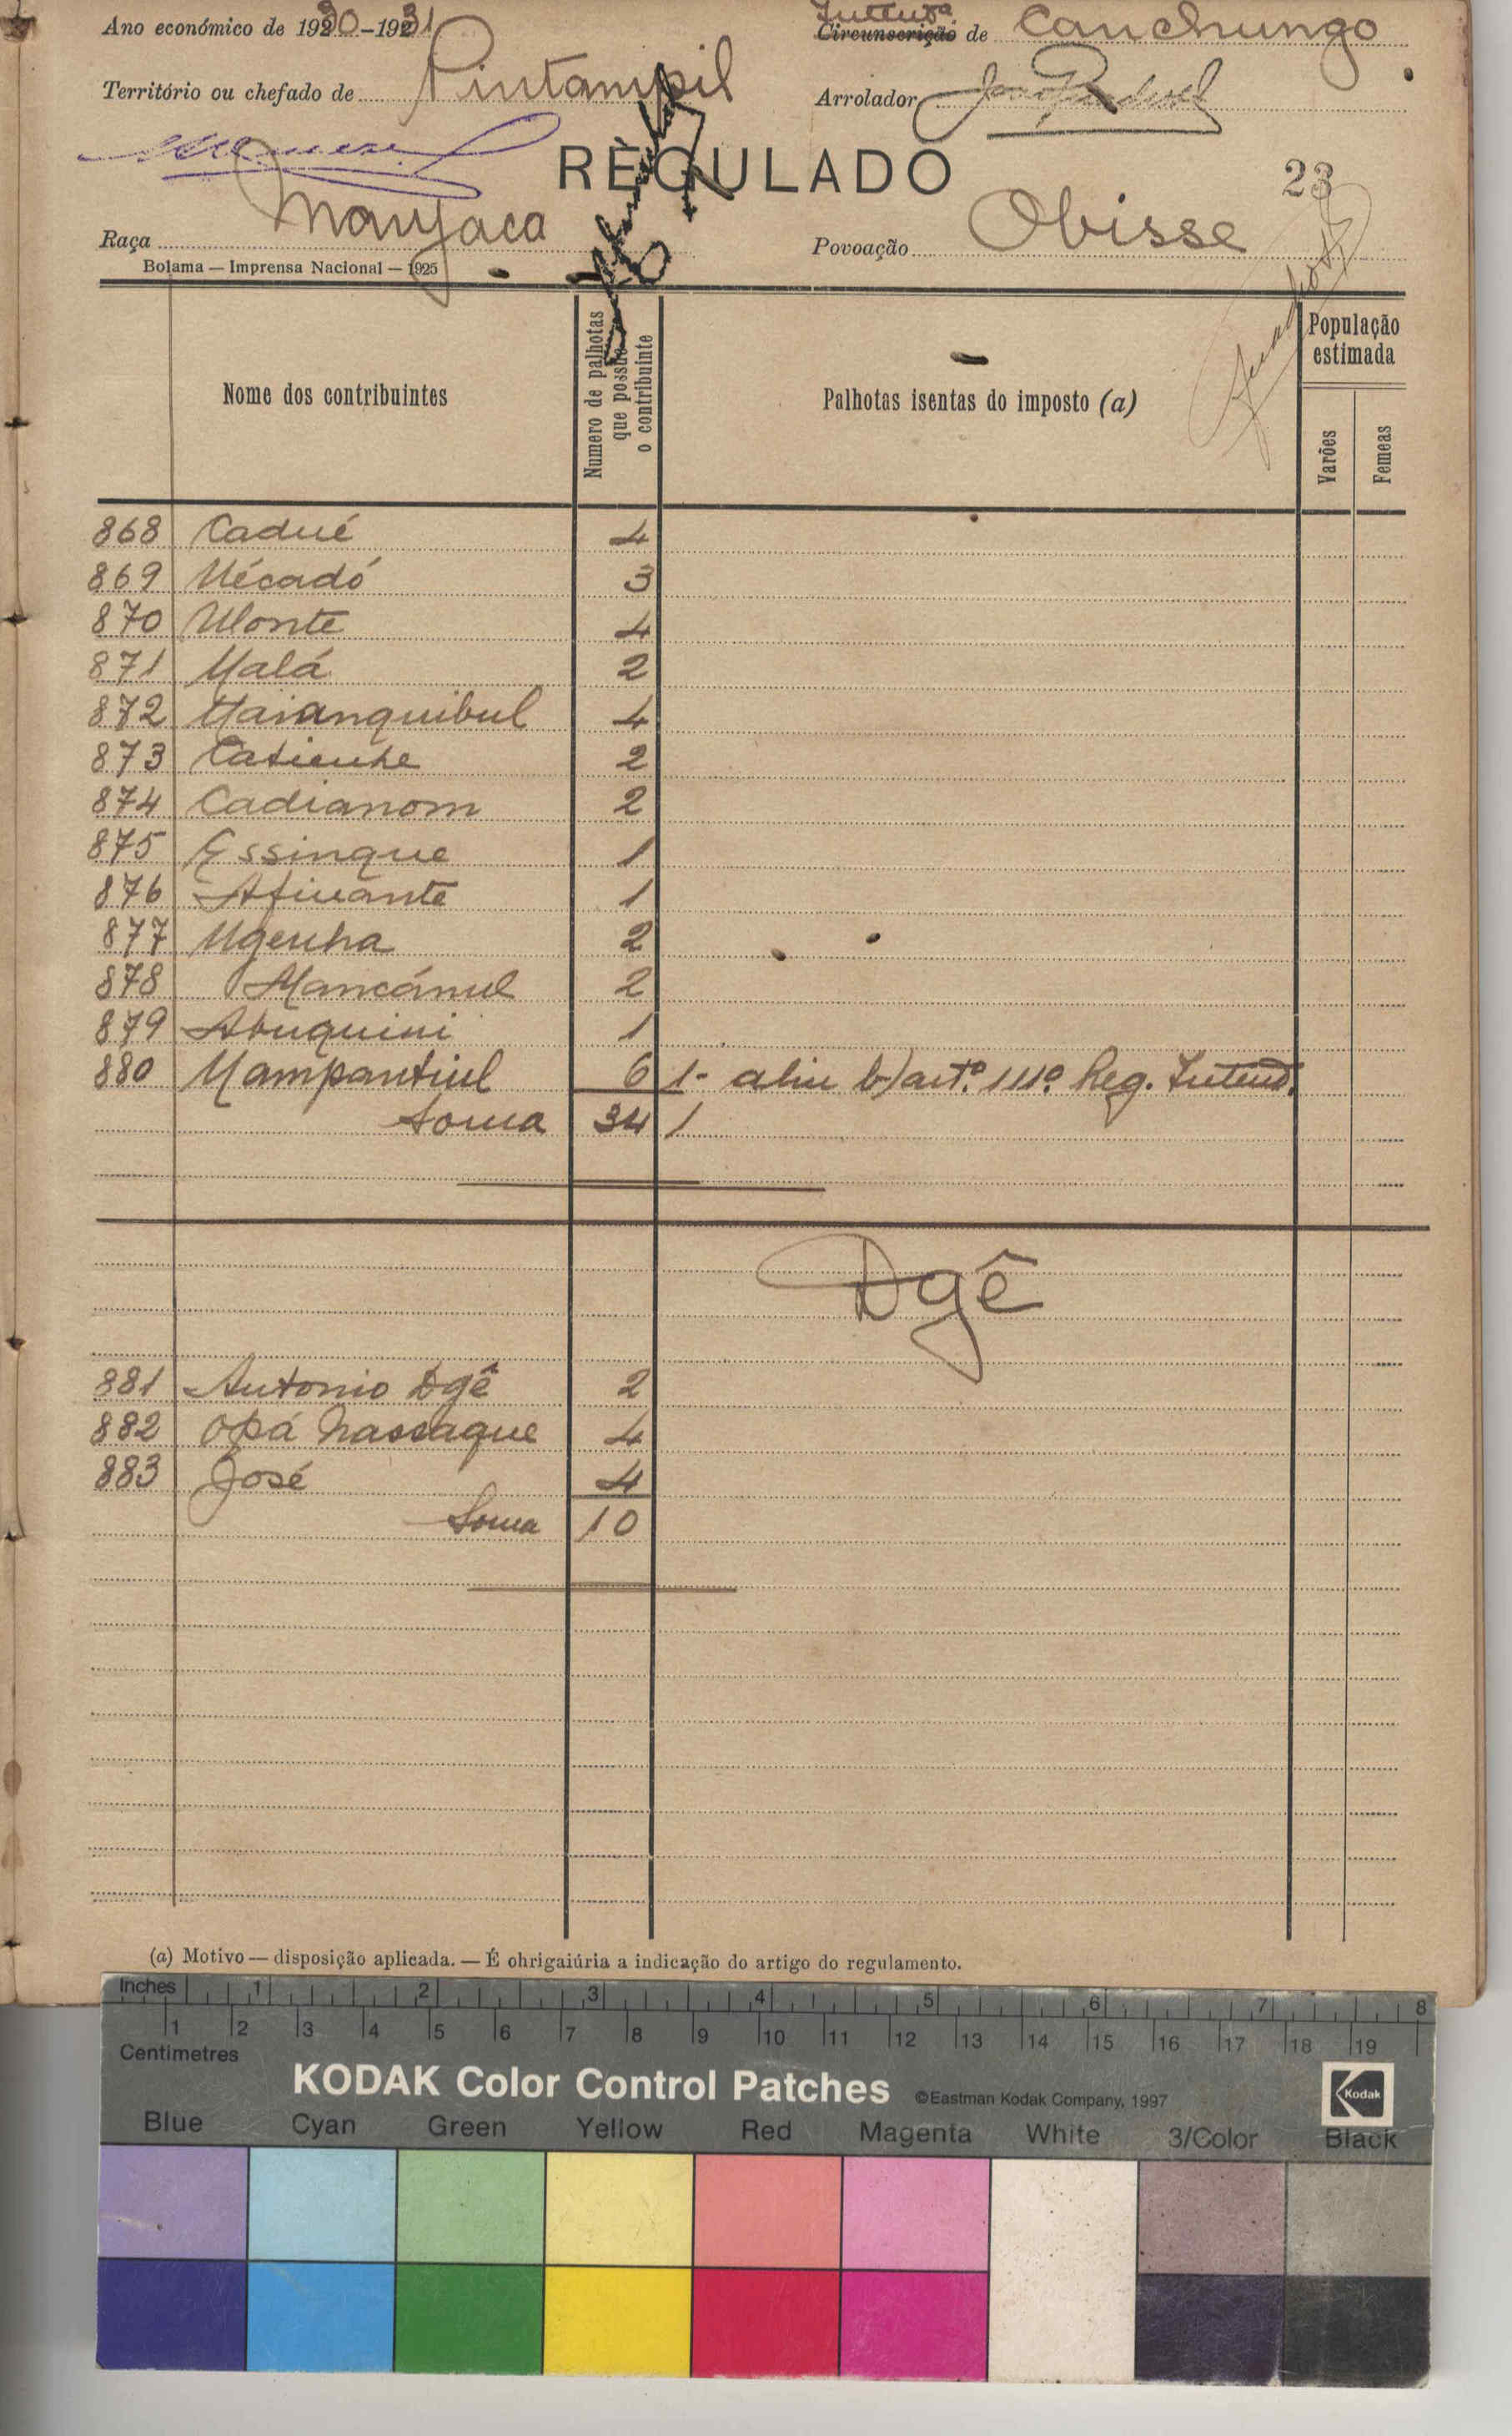 Ano económico de 1930-1931
Intend.ª
Circunscrição de Canchungo
Território ou chefado de Pintampil
Arrolador
REGULADO
23
Raça Manjaca
Povoação Obisse
Bolama — Imprensa Nacional — 1925
Nome dos contribuintes
Numero de palhotas que possue o contribuinte
Palhotas isentas do imposto (a)
População estimada
Varões
Femeas
868 Cadué 4
869 Mécadó 3
870 Monte 4
871 Malá 2
872 4
873 2
874 Cadianom 2
875 Essinque 1
876 1
877 Ugenha 2
878 Mancánul 2
879 Abuquini 1
880 Mampantiul 6 1- alin b) artº. 111º Reg. Intend.
Soma 34 1
Dgê
881 Antonio Dgê 2
882 Opá Nassaque 4
883 José 4
Soma 10
(a) Motivo — disposição aplicada. — É ohrigaiúria a indicação do artigo do regulamento.
Inches 1 2 3 4 5 6 7 8
1 2 3 4 5 6 7 8 9 10 11 12 13 14 15 16 17 18 19
Centimetres
KODAK Color Control Patches ©Eastman Kodak Company, 1997 Kodak
Blue Cyan Green Yellow Red Magenta White 3/Color Black